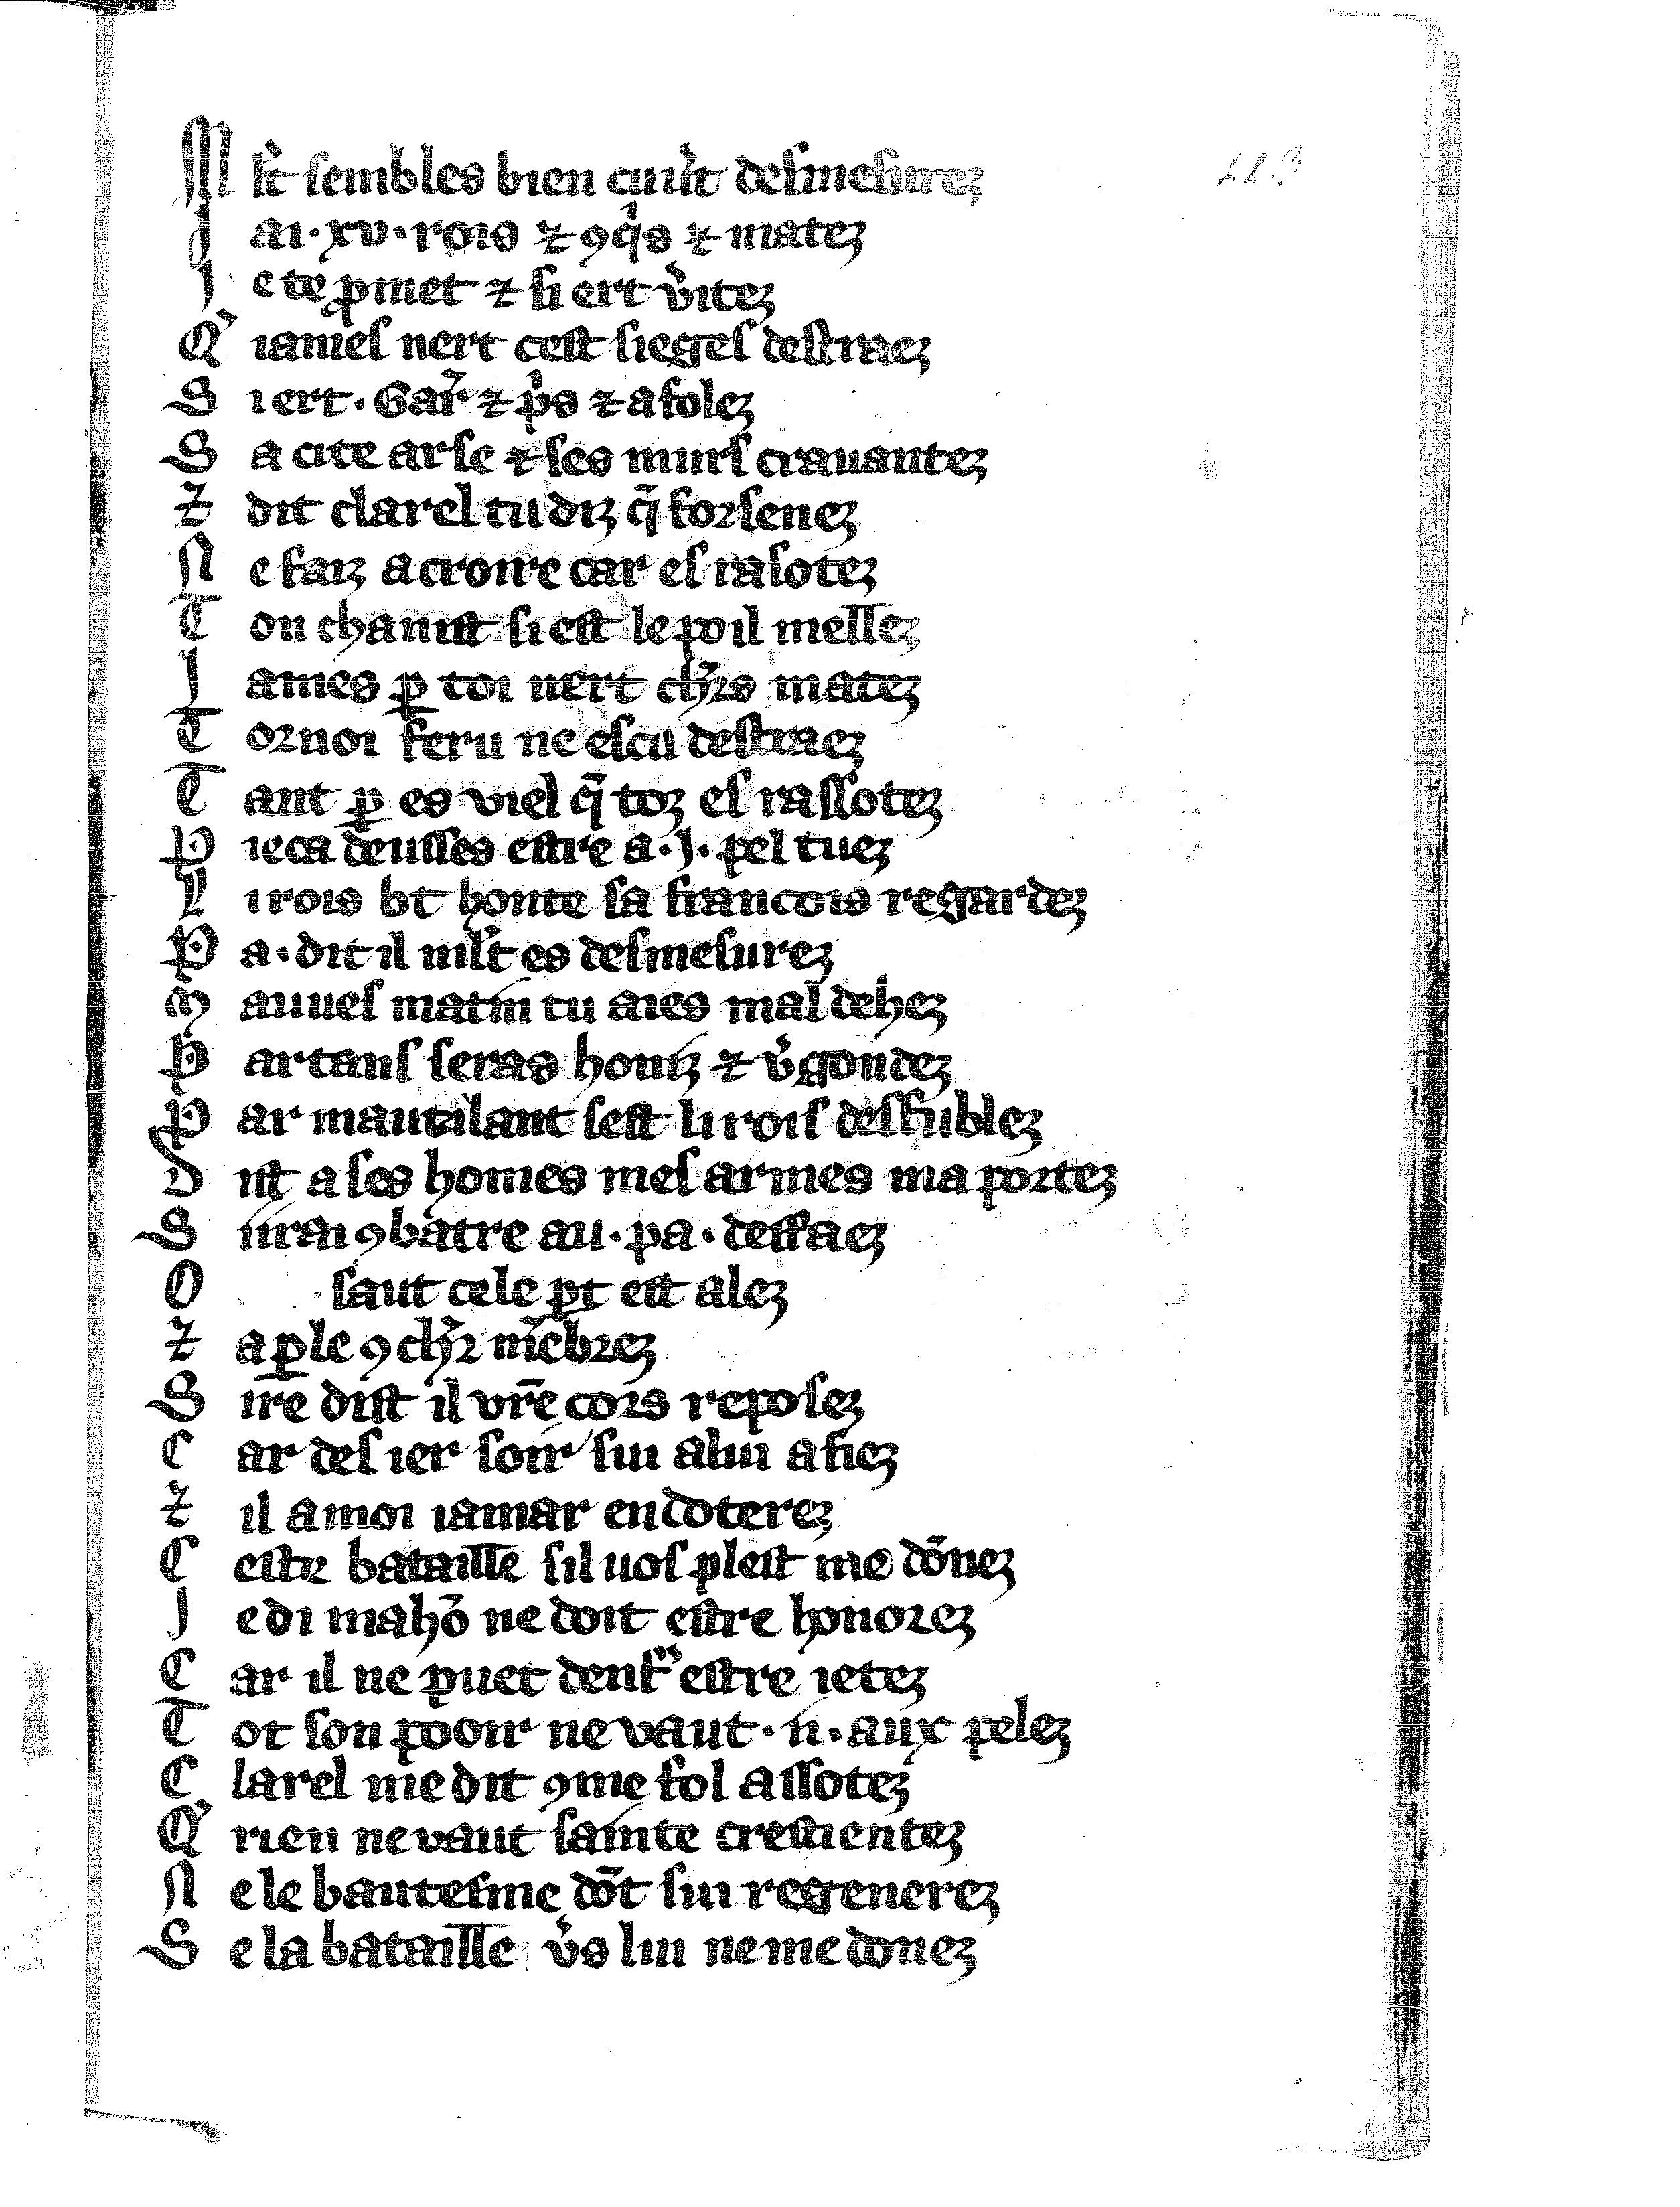 M lt̛ sembles bien cuưt desmesurez
J ai · xv · rois ⁊ ꝯq̛s ⁊ matez
J e te ꝓmet ⁊ si ert v̛itez
Q̛ iames nert cest sieges destraez
S i ert · Gar̛ ⁊ p̛s ⁊ afolez
S a cite arse ⁊ ses murs crauantez
⁊ dit clarel tu diz q̄ forsenez
N e faiz a croire car es rasotez
T on chanut si est le poil mellez
J ames ꝑ toi nert ch̛rs matez
T ornoi feru ne escu destraez
T ant ꝑ es viel q̄ toz es rassotez
P ieca deusses estre a · J · pel tuez
L i rois ot honte sa francois regardez
P a · dit il mlt̛ es desmesurez
M auues matin tu aies mal dehez
P artans seras honiz ⁊ v̛gondez
P ar mautilant sest li rois desfublez
D ist a ses homes mes armes ma portez
S iirai ꝯbatre au · pa · deffaez
O saut cele ꝑt est alez
⁊ aꝑle ꝯ ch̛r m̄ebrez
S ire dist il vr̄e cors reposez
C ar des ier soir sui a lui afiez
⁊ il a moi iamar en doterez
C este bataille sil uos plest me dōnez
J e di mahō ne doit estre honorez
C ar il ne puet denf̛ estre ietez
T ot son pooir ne vaut · ii · aux pelez
C larel me dit ꝯme fol assotez
Q̛ rien ne vaut sainte crestientez
N e le bautesme dōt sui regenerez
S e la bataille v̛s lui ne me donez